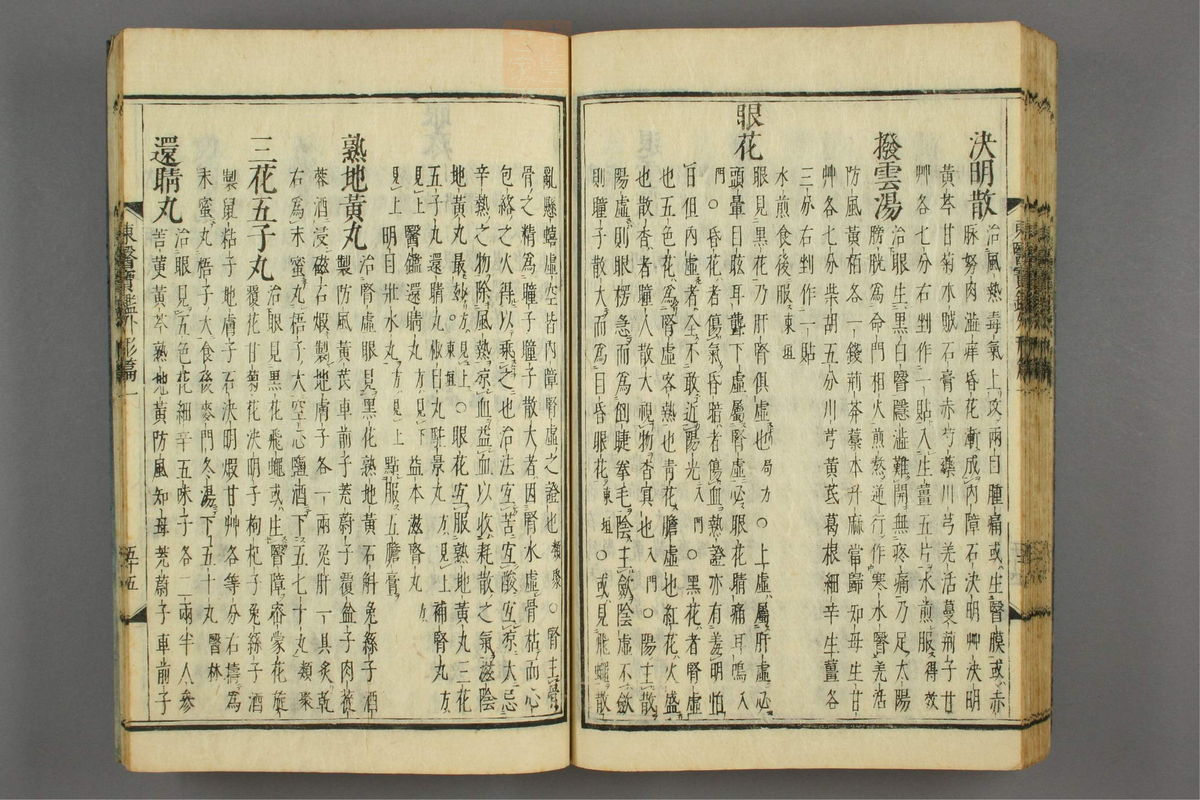 決明散
治風熱毒氣上攻兩目腫痛或生瞖膜或赤
脉努肉澁痒昏花漸成內障石決明艸決明
黃芩甘菊水賊石膏赤芍藥川芎羌活蔓荊子甘
艸各七分右剉作一貼入生薑五片水煎服得效
撥雲湯
治眼生黑白瞖隱澁難開無疼痛乃足太陽
膀胱爲命門相火煎熬逆行作寒水瞖羌活
防風黃栢各一錢荊芥藁本升麻當歸知母生甘
艸各七分柴胡五分川芎黃芪葛根細辛生薑各
三分右剉作一貼
水煎食後服東垣
眼花
眼見黑花乃肝腎俱虛也局方○上虛屬肝虛必
頭暈目眩耳聾下虛屬腎虛必眼花睛痛耳鳴入
門○昏花者傷氣昏暗者傷血熱證亦有羞明怕
日但內虛者全不敢近陽光入門○黑花者腎虛
也五色花爲腎虛客熱也靑花膽虛也紅花火盛
也散杳者瞳人散大視物杳冥也入門○陽主散
陽虛則眼楞急而爲倒睫拳毛陰主歛陰虛不歛
則瞳子散大而爲目昏眼花東垣○或見飛蠅散
亂懸蟢虛空皆內障腎虛之證也類聚○腎主骨
骨之精爲瞳子瞳子散大者因腎水虛骨枯而心
包絡之火得以乘之也治法宜苦宜酸宜凉大忌
辛熱之物除風熱凉血益血以收耗散之氣滋陰
地黃丸最妙方見上東垣○眼花宜服熟地黃丸三花
五子丸還睛丸椒目丸駐景丸方見上補腎丸方
見上醫鑑還睛丸方見下益本滋腎丸方
見上明目壯水丸方見上點服五膽膏
熟地黃丸
治腎虛眼見黑花熟地黃石斛兔絲子酒
製防風黃芪車前子茺蔚子覆盆子肉蓯
蓉酒浸磁石煆製地膚子各一兩兔肝一具炙乾
右爲末蜜丸梧子大空心鹽酒下五七十丸類聚
三花五子丸
治眼見黑花飛蠅或生瞖障密蒙花旋
覆花甘菊花決明子枸杞子兔絲子酒
製鼠粘子地膚子石決明煆甘艸各等分右擣爲
末蜜丸梧子大食後麥門冬湯下五十丸醫林
還睛丸
治眼見五色花細辛五味子各二兩半人參
苦黃黃芩熟地黃防風知母茺蔚子車前子
東醫寶鑑外形篇一
五十五